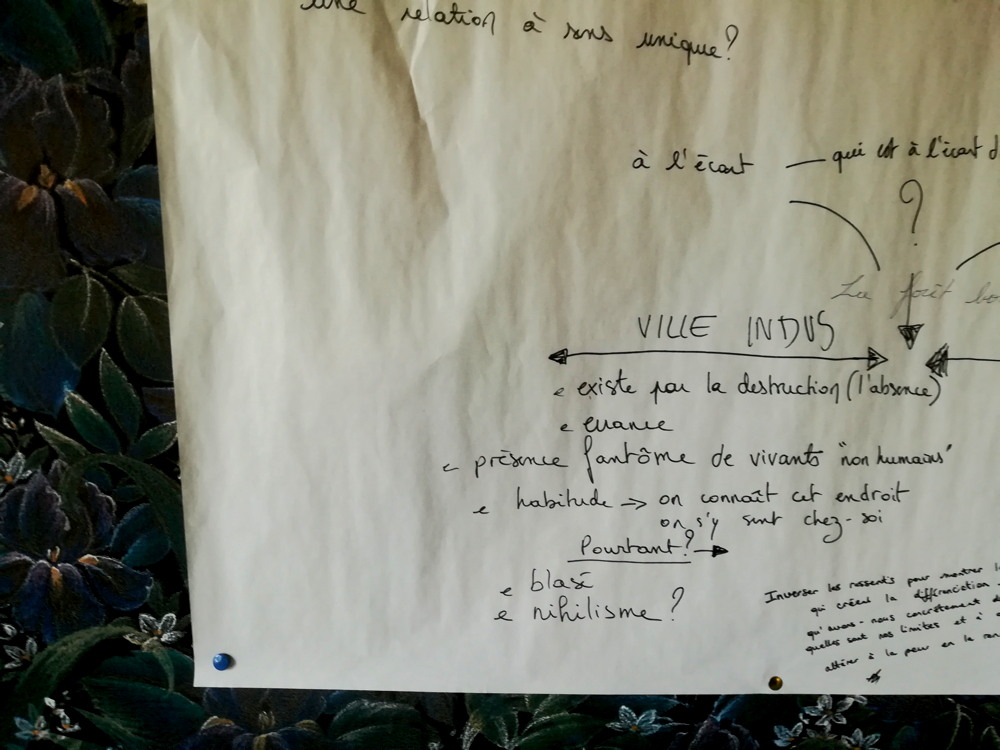 une relation à sens unique?
à l'écart — qui est à l'écart d
?
La forêt bo
VILLE INDUS
existe par la destruction (l'absence)
errance
présence fantôme de vivants "non humains"
habitude → on connaît cet endroit
on s'y sent chez-soi
Pourtant? →
blasé
nihilisme?
Inverser les ressentis pour montrer l
qui créent la différenciation
qu'avons-nous concrètement d
quelles sont nos limites et à
attirer à la peur en la ren